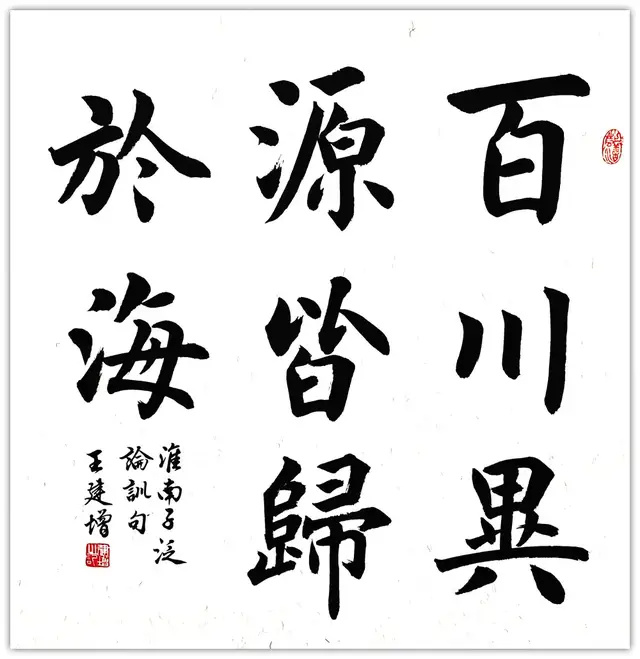 百川異
源皆歸
於海
淮南子泛
論訓句
王建增